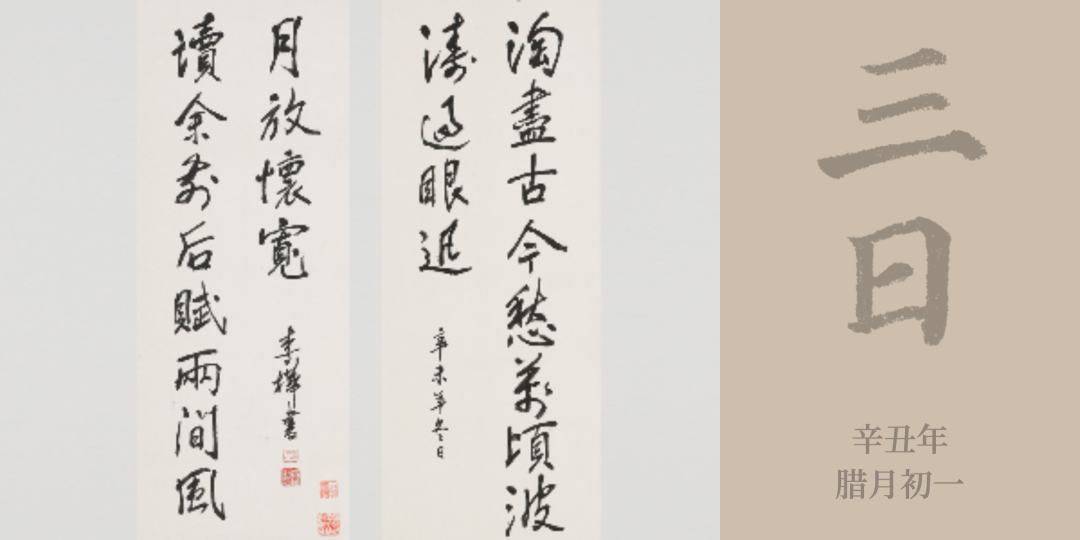 淘盡古今愁萬頃波
濤過眼迅
辛未年冬日
讀余前后賦兩間風
月放懷寬
李樺書
三日
辛丑年
腊月初一